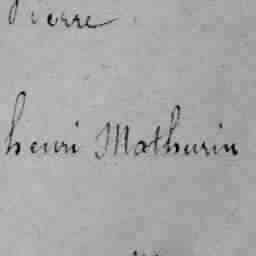 Pierre
henri Mathurin